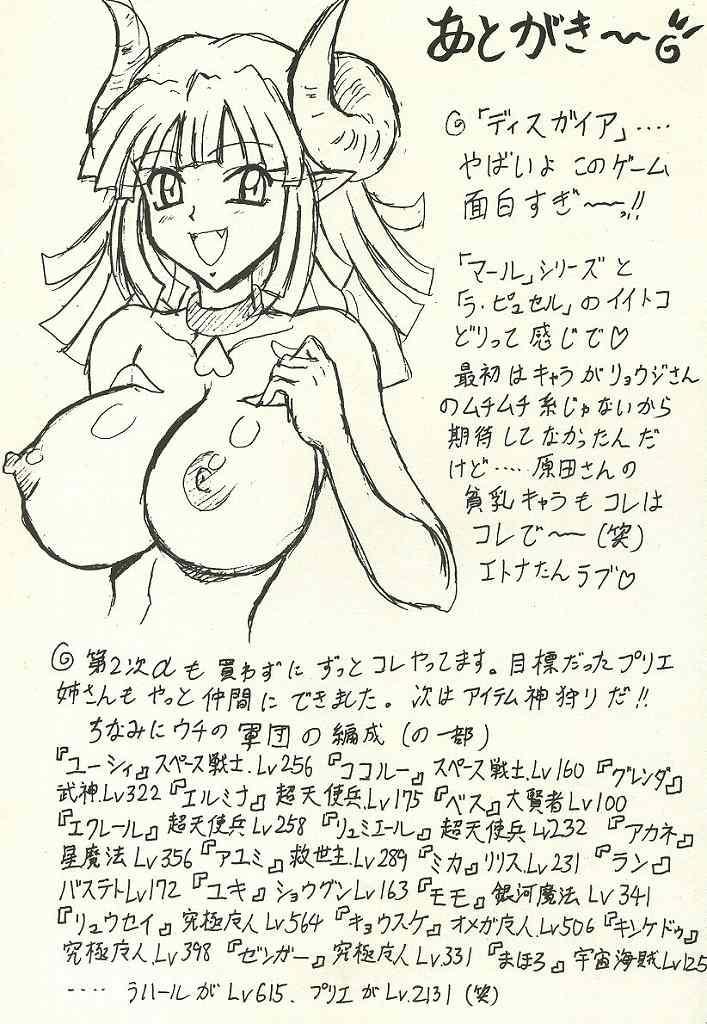 あとがき〜
◎「ディスガイア」‥‥
やばいよ このゲーム
面白すぎ〜っ!!
「マール」シリーズと
「ラ・ピュセル」のイイトコ
どりって感じで♡
最初はキャラがリョウジさん
のムチムチ系じゃないから
期待してなかったんだ
けど‥‥ 原田さんの
貧乳キャラもコレは
コレで〜(笑)
エトナたんラブ♡
◎ 第2次αも買わずにずっとコレやってます。目標だったプリエ
姉さんもやっと仲間にできました。次はアイテム神狩りだ!!
ちなみにウチの軍団の編成(の一部)
『ユーシィ』スペース戦士.Lv256 『ココルー』スペース戦士.Lv160 『グレンダ』
武神.Lv322 『エルミナ』超天使兵.Lv175 『ベス』大賢者Lv100
『エクレール』超天使兵Lv258 『リュミエール』超天使兵Lv232 『アカネ』
星魔法Lv356 『アユミ』救世主.Lv289 『ミカ』リリス.Lv231 『ラン』
バステトLv172 『ユキ』ショウグンLv163 『モモ』銀河魔法Lv341
『リュウセイ』究極庁人.Lv564 『キョウスケ』オメガ庁人.Lv506 『キンケドゥ』
究極庁人.Lv398 『ゼンガー』究極庁人.Lv331 『まほろ』宇宙海賊Lv125
‥‥ ラハールがLv615、プリエがLv.2131(笑)